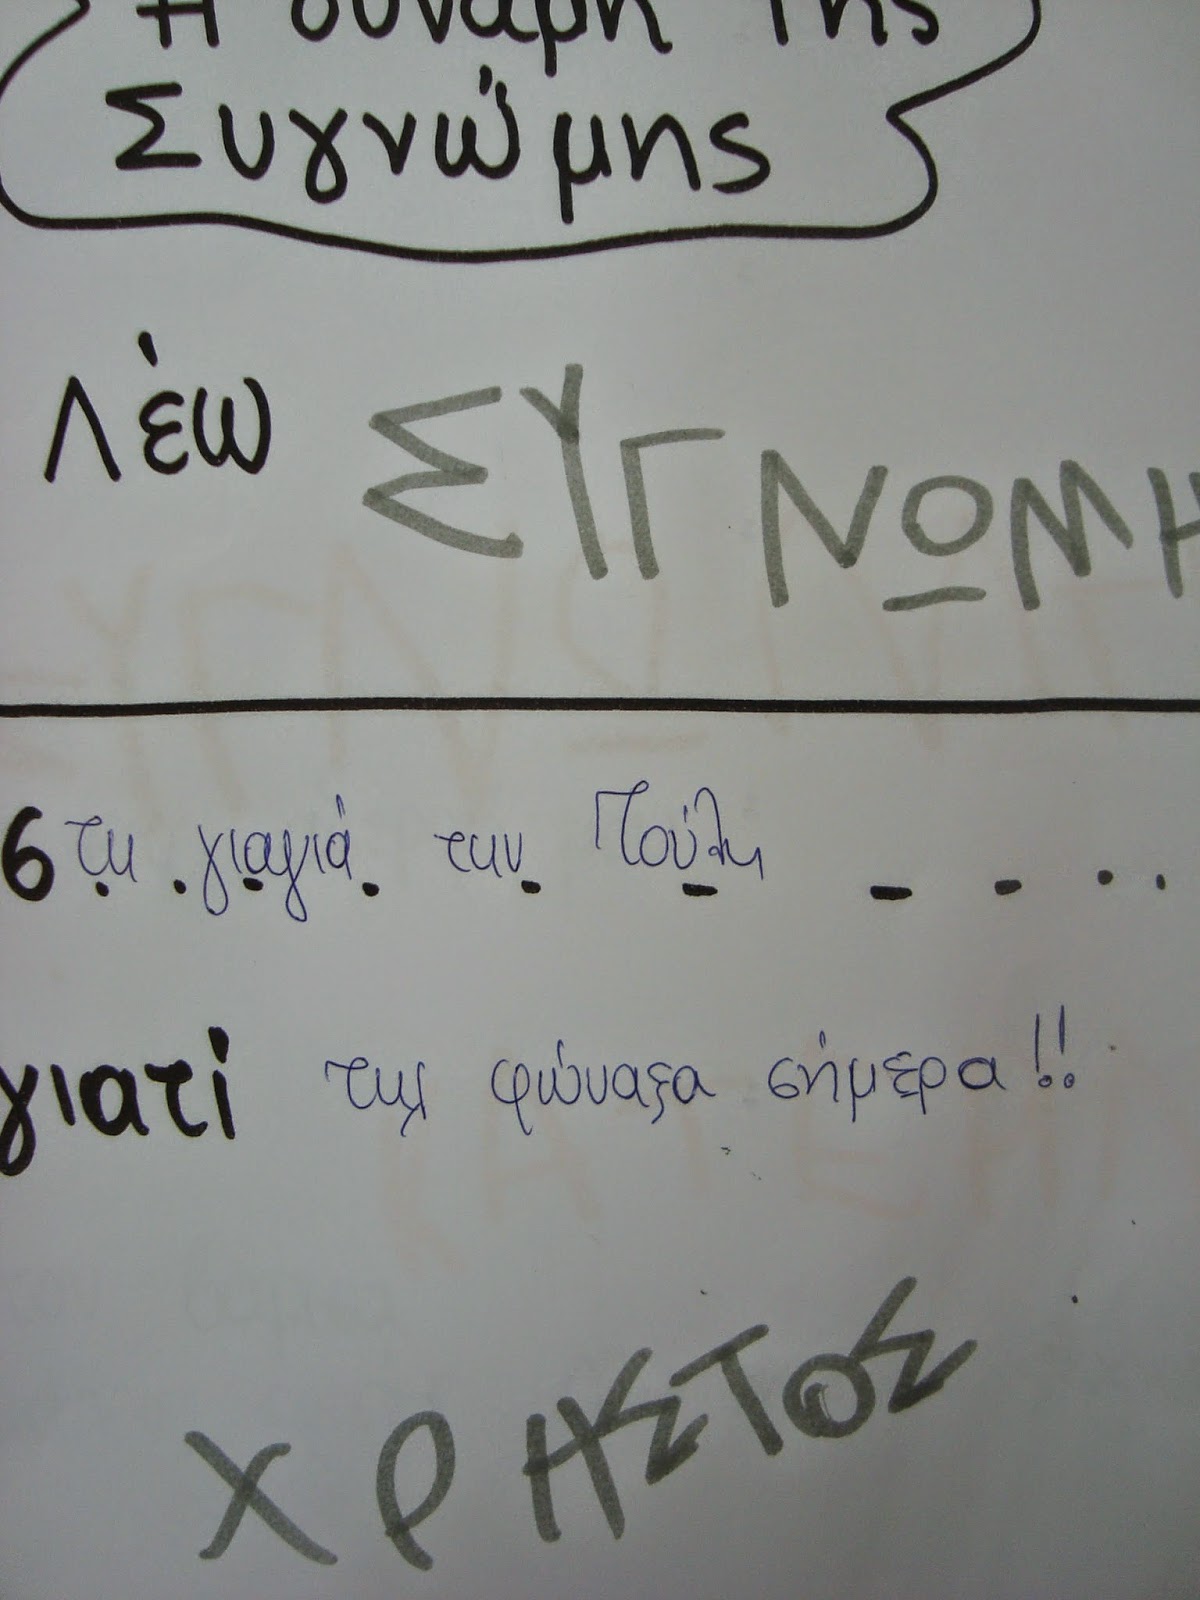 Η δύναμη της
Συγνώμης
Λέω ΣΥΓΝΩΜΗ
στη γιαγιά την Τούλη
γιατί της φώναξα σήμερα!!
ΧΡΗΣΤΟΣ